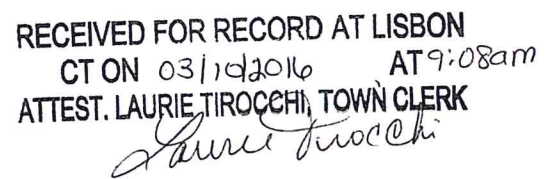 RECEIVED FOR RECORD AT LISBON
CT ON 03/10/2016 AT 9:08am
ATTEST. LAURIE TIROCCHI, TOWN CLERK
Laurie Tirocchi